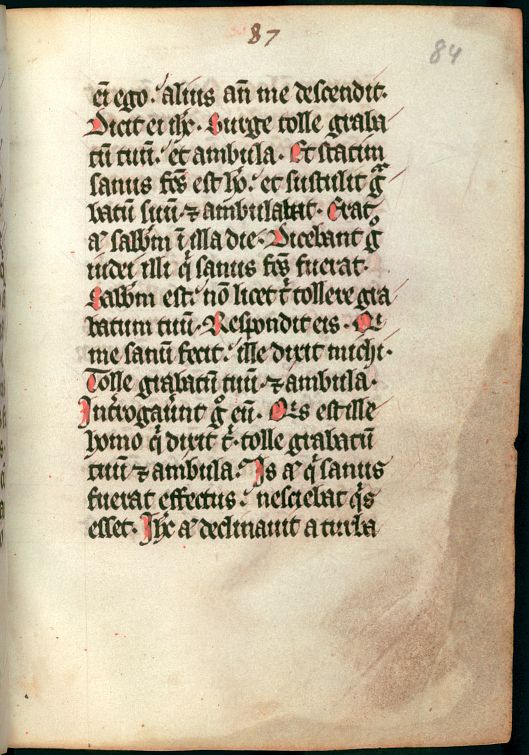 87
84
em̄ ego: alius an̄ me descendit.
Dicit ei ihc̄. Surge tolle graba
tū tuū: et ambula. Et statim
sanus fc̄s est hō: et sustulit gͣ
batū suū ⁊ ambulabat. Erat
aͭ sabb̄m ī illa die. Dicebant gͦ
iudei illi qͥ sanus fc̄s fuerat.
Sabb̄m est: nō licet tͥ tollere gra
batum tuū. Respondit eis. Qͥ
me sanū fecit: ille dixit michi.
Tolle grabatū tuū ⁊ ambula.
Int̄rogauerūt gͦ eū. Qͥs est ille
homo qͥ dixit tͥ. tolle grabatū
tuū ⁊ ambula: Is aͭ qͥ sanus
fuerat effectus: nesciebat qͥs
esset. Ihc̄ aͭ declinauit a turba